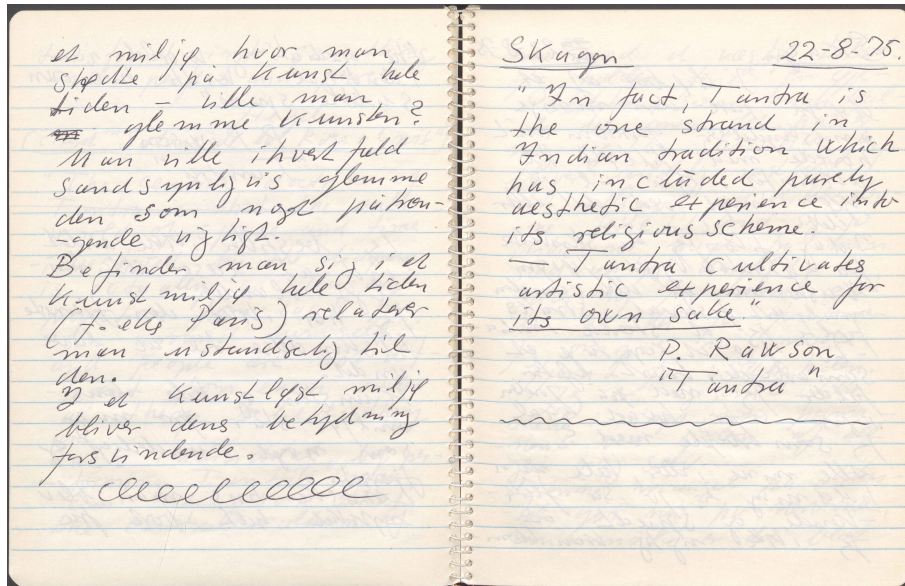 et miljø hvor man
stødte på kunst hele
tiden – ville man
glemme kunsten?
Man ville ihvert fald
sandsynligvis glemme
den som noget påtræn-
-gende vigtigt.
Befinder man sig i et
kunstmiljø hele tiden
(f. eks Paris) relaterer
man ustandselig til
den.
I et kunstløst miljø
bliver dens betydning
forsvindende.
Skagen 22-8-75.
"In fact, Tantra is
the one strand in
Indian tradition which
has included purely
aesthetic experience into
its religious scheme.
— Tantra cultivates
artistic experience for
its own sake."
P. Rawson
"Tantra"